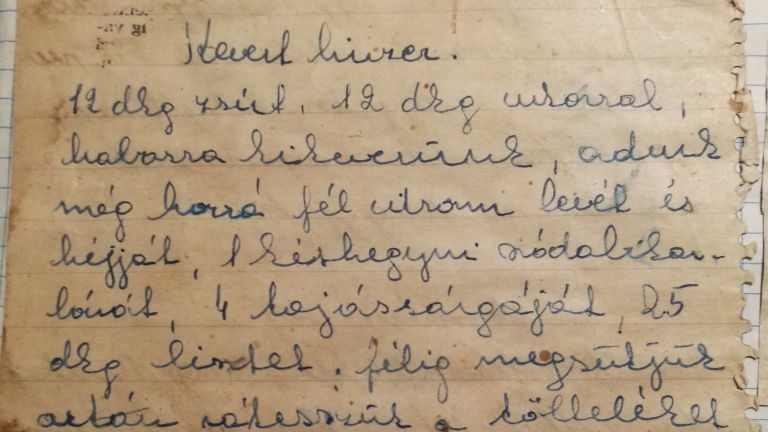 Kevert linzer.
12 dkg zsírt, 12 dkg cukorral,
habosra kikeverünk, adunk
még hozzá fél citrom levét és
héjját, 1 késhegynyi szódabikar-
bónát, 4 tojássárgáját, 25
dkg lisztet. félig megsütjük
aztán rátesszük a tölteléket